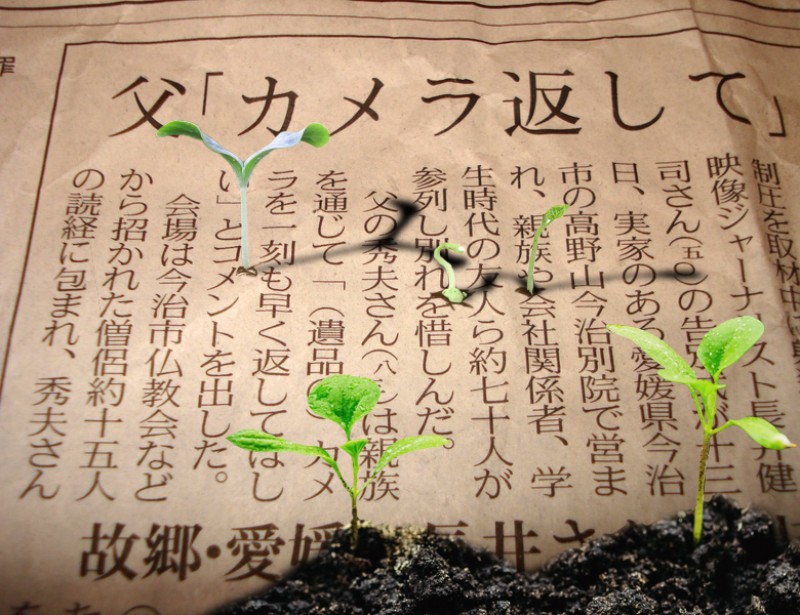 父「カメラ返して」
制圧を取材中
映像ジャーナリスト長井健
司さん(五〇)の告別式が十三
日、実家のある愛媛県今治
市の高野山今治別院で営ま
れ、親族や会社関係者、学
生時代の友人ら約七十人が
参列し別れを惜しんだ。
父の秀夫さん(八)は親族
を通じて「(遺品の)カメ
ラを一刻も早く返してほし
い」とコメントを出した。
会場は今治市仏教会など
から招かれた僧侶約十五人
の読経に包まれ、秀夫さん
故郷・愛媛 井さ